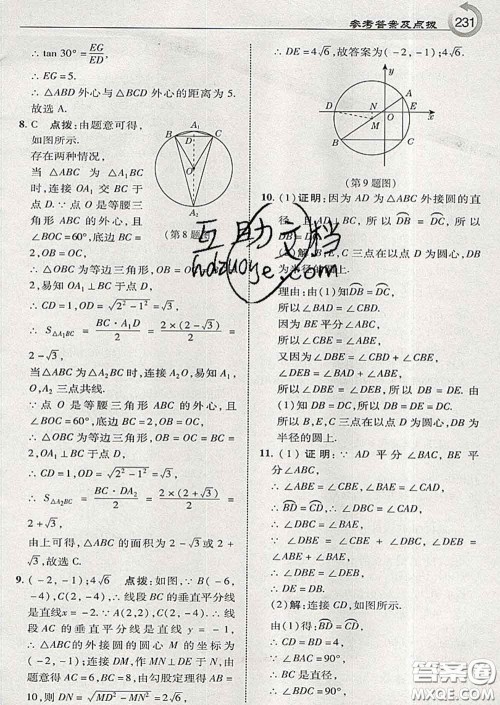 参考答案及点拨
231
∴ tan 30°=EG/ED.
∴ EG=5.
∴ △ABD 外心与△BCD 外心的距离为 5.
故选 A.
8. C 点拨：由题意可得，
如图所示.
存在两种情况，
当 △A₁BC 为 △ABC
时，连接 OA₁ 交 BC 于
点 D. ∵ 点 O 是等腰三
角形 ABC 的外心，
∠BOC=60°, 底边 BC=2,
OB=OC,
(第 8 题图)
∴ △OBC 为等边三角形，OB=OC=BC=2,
OA₁⊥BC 于点 D.
∴ CD=1, OD=√2²-1²=√3.
∴ S△A₁BC=BC·A₁D/2=2×(2-√3)/2=
2-√3.
当 △A₂BC 为 △ABC 时，连接 A₂O, 易得 A₂,
O, A₁ 三点共线.
∵ 点 O 是等腰三角形 ABC 的外心，
∠BOC=60°, 底边 BC=2, OB=OC,
∴ △OBC 为等边三角形，OB=OC=BC=2,
OA₁⊥BC 于点 D.
∴ CD=1, OD=√2²-1²=√3.
∴ S△A₂BC=BC·DA₂/2=2×(2+√3)/2=
2+√3.
由上可得，△ABC 的面积为 2-√3 或 2+
√3, 故选 C.
9. (-2,-1); 4√6 点拨：如图，∵ B(-6,
-4), C(2,-4), ∴ 线段 BC 的垂直平分线
是直线x=-2. ∵ A(2,2), C(2,-4), ∴ 线
段 AC 的垂直平分线是直线 y=-1,
∴ △ABC 的外接圆的圆心 M 的坐标为
(-2,-1). 连接 DM, 作 MN⊥DE 于点 N,
连接 AB, 由题易得 AB 过点 M, 由勾股定理得 AB=
10, 则 DN=√MD²-MN²=√5²-1²=2√6,
∴ DE=4√6. 故答案为(-2,-1); 4√6.
(第 9 题图)
10. (1) 证明：因为 AD 为△ABC 外接圆的直
径，且 AD⊥BC, 所以 BD=CD, 所以 BD=
CD.
(2) 解：B, E, C 三点在以点 D 为圆心，DB
为半径的圆上.
理由：由 (1) 知BD=CD,
所以 ∠BAD=∠CBD.
因为 BE 平分∠ABC,
所以 ∠CBE=∠ABE.
又因为∠DBE=∠CBD+∠CBE,
∠DEB=∠BAD+∠ABE,
所以∠DBE=∠DEB, 所以 DB=DE.
由(1)知 BD=CD, 所以 DB=DE=DC.
所以 B, E, C 三点在以点 D 为圆心，DB 为
半径的圆上.
11. (1) 证明：∵ AD 平分∠BAC, BE 平分
∠ABC,
∴ ∠ABE=∠CBE, ∠BAE=∠CAD,
∴ BD=CD.
∴ ∠DBC=∠BAE.
∵ ∠DBE=∠CBE+∠DBC,
∠DEB=∠ABE+∠BAE,
∴ ∠DBE=∠DEB,
∴ DE=DB.
(2) 解：连接 CD, 由(1)得 BD=CD,
∴ CD=BD=4.
∵ ∠BAC=90°,
∴ BC是直径，
∴ ∠BDC=90°,
互助文档
hdzuoye.com
答案圈